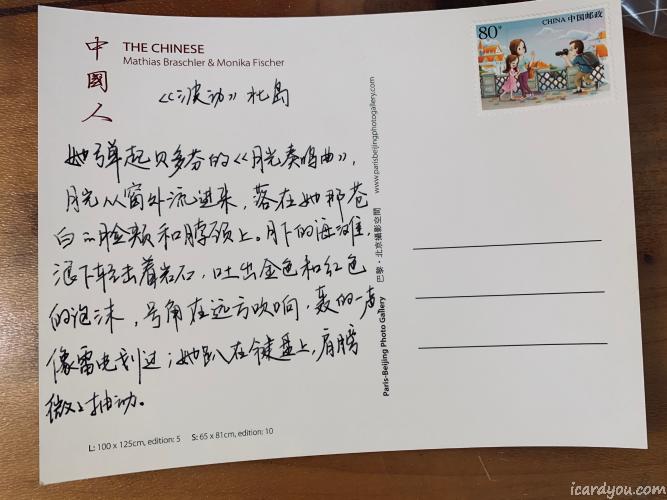 中國人
THE CHINESE
Mathias Braschler & Monika Fischer
80分
CHINA 中国邮政
《波动》北岛
她弹起贝多芬的《月光奏鸣曲》，
月光从窗外流进来，落在她那苍
白的脸颊和脖颈上。月下的海滩，
浪下轻击着岩石，吐出金色和红色
的泡沫，号角在远方吹响，轰的一声
像雷电划过；她趴在键盘上，肩膀
微微抽动。
L: 100 x 125cm, edition: 5 S: 65 x 81cm, edition: 10
Paris-Beijing Photo Gallery 巴黎·北京攝影空間 www.parisbeijingphotogallery.com
icardyou.com